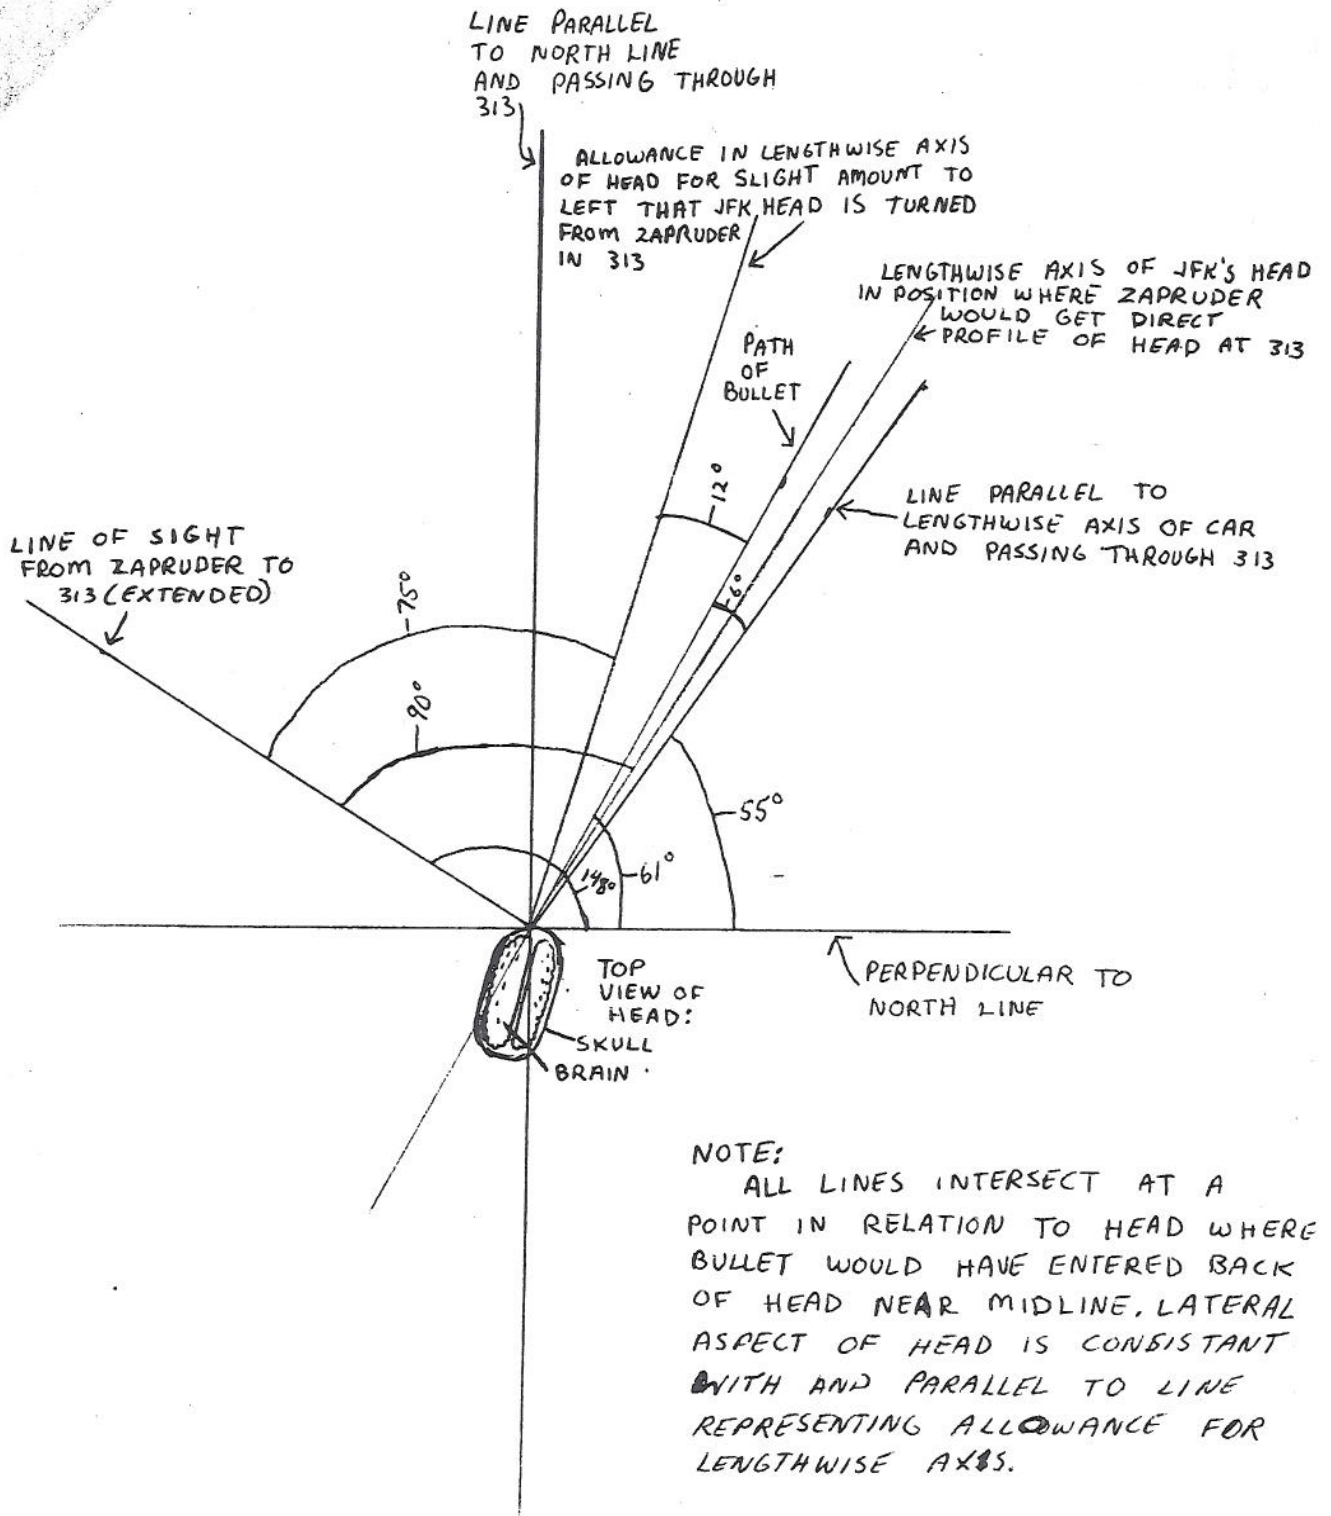 LINE PARALLEL
TO NORTH LINE
AND PASSING THROUGH
313
ALLOWANCE IN LENGTHWISE AXIS
OF HEAD FOR SLIGHT AMOUNT TO
LEFT THAT JFK HEAD IS TURNED
FROM ZAPRUDER
IN 313
LENGTHWISE AXIS OF JFK'S HEAD
IN POSITION WHERE ZAPRUDER
WOULD GET DIRECT
PROFILE OF HEAD AT 313
PATH
OF
BULLET
12°
LINE PARALLEL TO
LENGTHWISE AXIS OF CAR
AND PASSING THROUGH 313
LINE OF SIGHT
FROM ZAPRUDER TO
313 (EXTENDED)
75°
6°
90°
55°
61°
148°
PERPENDICULAR TO
NORTH LINE
TOP
VIEW OF
HEAD:
SKULL
BRAIN
NOTE:
ALL LINES INTERSECT AT A
POINT IN RELATION TO HEAD WHERE
BULLET WOULD HAVE ENTERED BACK
OF HEAD NEAR MIDLINE. LATERAL
ASPECT OF HEAD IS CONSISTANT
WITH AND PARALLEL TO LINE
REPRESENTING ALLOWANCE FOR
LENGTHWISE AXIS.